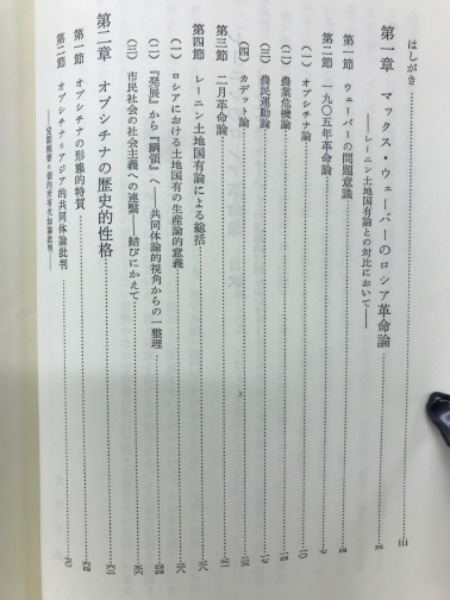 はしがき……iii
第一章 マックス・ウェーバーのロシア革命論……三
――レーニン土地国有論との対比において――
第一節 ウェーバーの問題意識……四
第二節 一九〇五年革命論……七
(一) オプシチナ論……一〇
(二) 農業危機論……一四
(三) 農民運動論……一七
(四) カデット論……
第三節 二月革命論……
第四節 レーニン土地国有論による総括……三八
(一) ロシアにおける土地国有の生産論的意義……三八
(二) 『発展』から『綱領』へ――共同体論的視角からの一整理……四四
(三) 市民社会の社会主義への連繋――結びにかえて……五六
第二章 オプシチナの歴史的性格……六三
第一節 オプシチナの形態的特質……六四
第二節 オプシチナ=アジア的共同体論批判……七〇